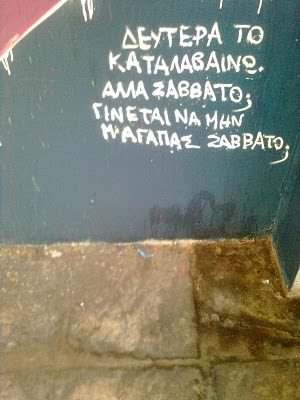 ΔΕΥΤΕΡΑ ΤΟ
ΚΑΤΑΛΑΒΑΙΝΩ.
ΑΛΛΑ ΣΑΒΒΑΤΟ;
ΓΙΝΕΤΑΙ ΝΑ ΜΗΝ
Μ'ΑΓΑΠΑΣ ΣΑΒΒΑΤΟ;